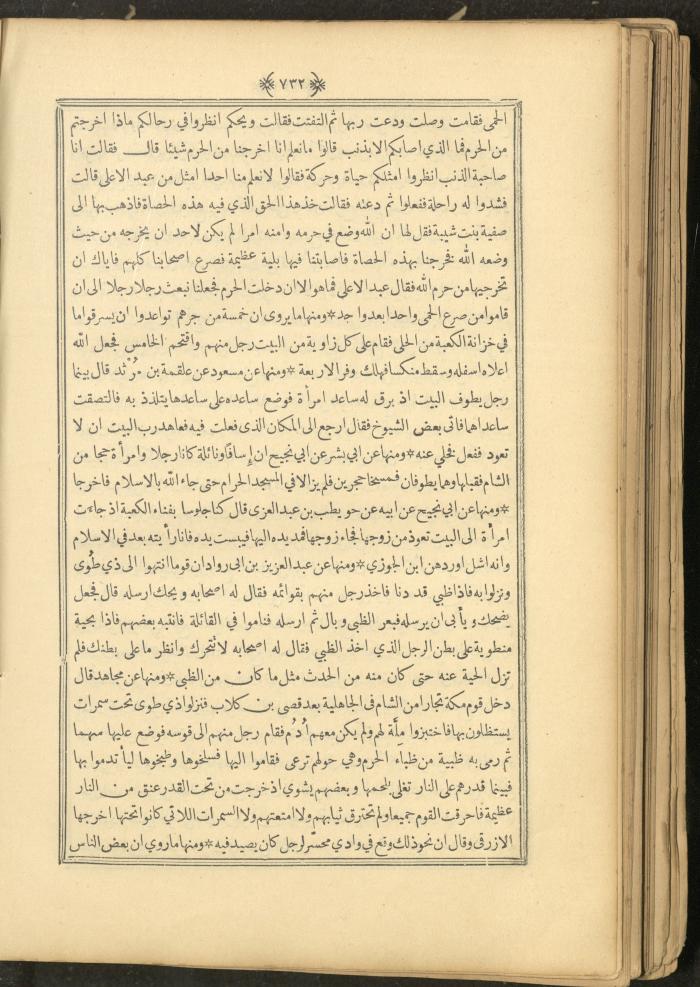 ٧٣٢
الحمى فقامت وصلت ودعت ربها ثم التفتت فقالت ويحكم انظروا في رحالكم ماذا اخرجتم
من الحرم فما الذي اصابكم الا بذنب قالوا مانعلم انا اخرجنا من الحرم شيئا قال فقالت انا
صاحبة الذنب انظروا امثلكم حياة وحركة فقالوا لانعلم منا احدا امثل من عبد الاعلى قالت
فشدوا له راحلة ففعلوا ثم دعته فقالت خذ هذا الحق الذي فيه هذه الحصاة فاذهب بها الى
صفية بنت شيبة فقل لها ان الله وضع في حرمه وامنه امرا لم يكن لاحد ان يخرجه من حيث
وضعه الله فخرجنا بهذه الحصاة فاصابتنا فيها بلية عظيمة فصرع اصحابنا كلهم فاياك ان
تخرجيها من حرم الله فقال عبد الاعلى فماهو الا ان دخلت الحرم فجعلنا نبعث رجلا رجلا الى ان
قاموا من صرع الحمى واحدا بعد واحد * ومنها ما يروى ان خمسة من جرهم تواعدوا ان يسرقوا ما
في خزانة الكعبة من الحلى فقام على كل زاوية من البيت رجل منهم واقتحم الخامس فجعل الله
اعلاه اسفله وسقط منكسا فهلك وفر الاربعة * ومنها عن مسعود عن علقمة بن مُرْثد قال بينما
رجل يطوف البيت اذ برق له ساعد امرأة فوضع ساعده على ساعدها يتلذذ به فالتصقت
ساعداهما فاتى بعض الشيوخ فقال ارجع الى المكان الذى فعلت فيه فعاهد رب البيت ان لا
تعود ففعل فخلي عنه * ومنها عن ابي بشر عن ابي نجيح ان إسافا ونائلة كانا رجلا وامرأة حجا من
الشام فقبلها وهما يطوفان فمسخا حجرين فلم يزالا في المسجد الحرام حتى جاء الله بالاسلام فاخرجا
* ومنها عن ابي نجيح عن ابيه عن حويطب بن عبد العزى قال كنا جلوسا بفناء الكعبة اذ جاءت
امرأة الى البيت تعوذ من زوجها فجاء زوجها فمد يده اليها فيبست يده فانا رأيته بعد في الاسلام
وانه اشل اوردهن ابن الجوزي * ومنها عن عبد العزيز بن ابى رواد ان قوما انتهوا الى ذي طُوى
ونزلوا به فاذا ظبي قد دنا فاخذ رجل منهم بقوائمه فقال له اصحابه ويحك ارسله قال فجعل
يضحك ويأبى ان يرسله فبعر الظبي وبال ثم ارسله فناموا في القائلة فانتبه بعضهم فاذا بحية
منطوية على بطن الرجل الذي اخذ الظبي فقال له اصحابه لا تتحرك وانظر ما على بطنك فلم
تزل الحية عنه حتى كان منه من الحدث مثل ما كان من الظبي * ومنها عن مجاهد قال
دخل قوم مكة تجار من الشام فى الجاهلية بعد قصى بن كلاب فنزلوا ذي طوى تحت سمرات
يستظلون بها فاختبزوا مِلّة لهم ولم يكن معهم اُدُم فقام رجل منهم الى قوسه فوضع عليها سهما
ثم رمى به ظبية من ظباء الحرم وهي حولهم ترعى فقاموا اليها فسلخوها وطبخوها ليأتدموا بها
فبينما قدرهم على النار تغلى بلحمها وبعضهم يشوي اذ خرجت من تحت القدر عنق من النار
عظيمة فاحرقت القوم جميعا ولم تحترق ثيابهم ولا امتعتهم ولا السمرات اللاتي كانوا تحتها اخرجها
الازرقى وقال ان نحو ذلك وقع في وادي محسّر لرجل كان يصيد فيه * ومنها ما روي ان بعض الناس